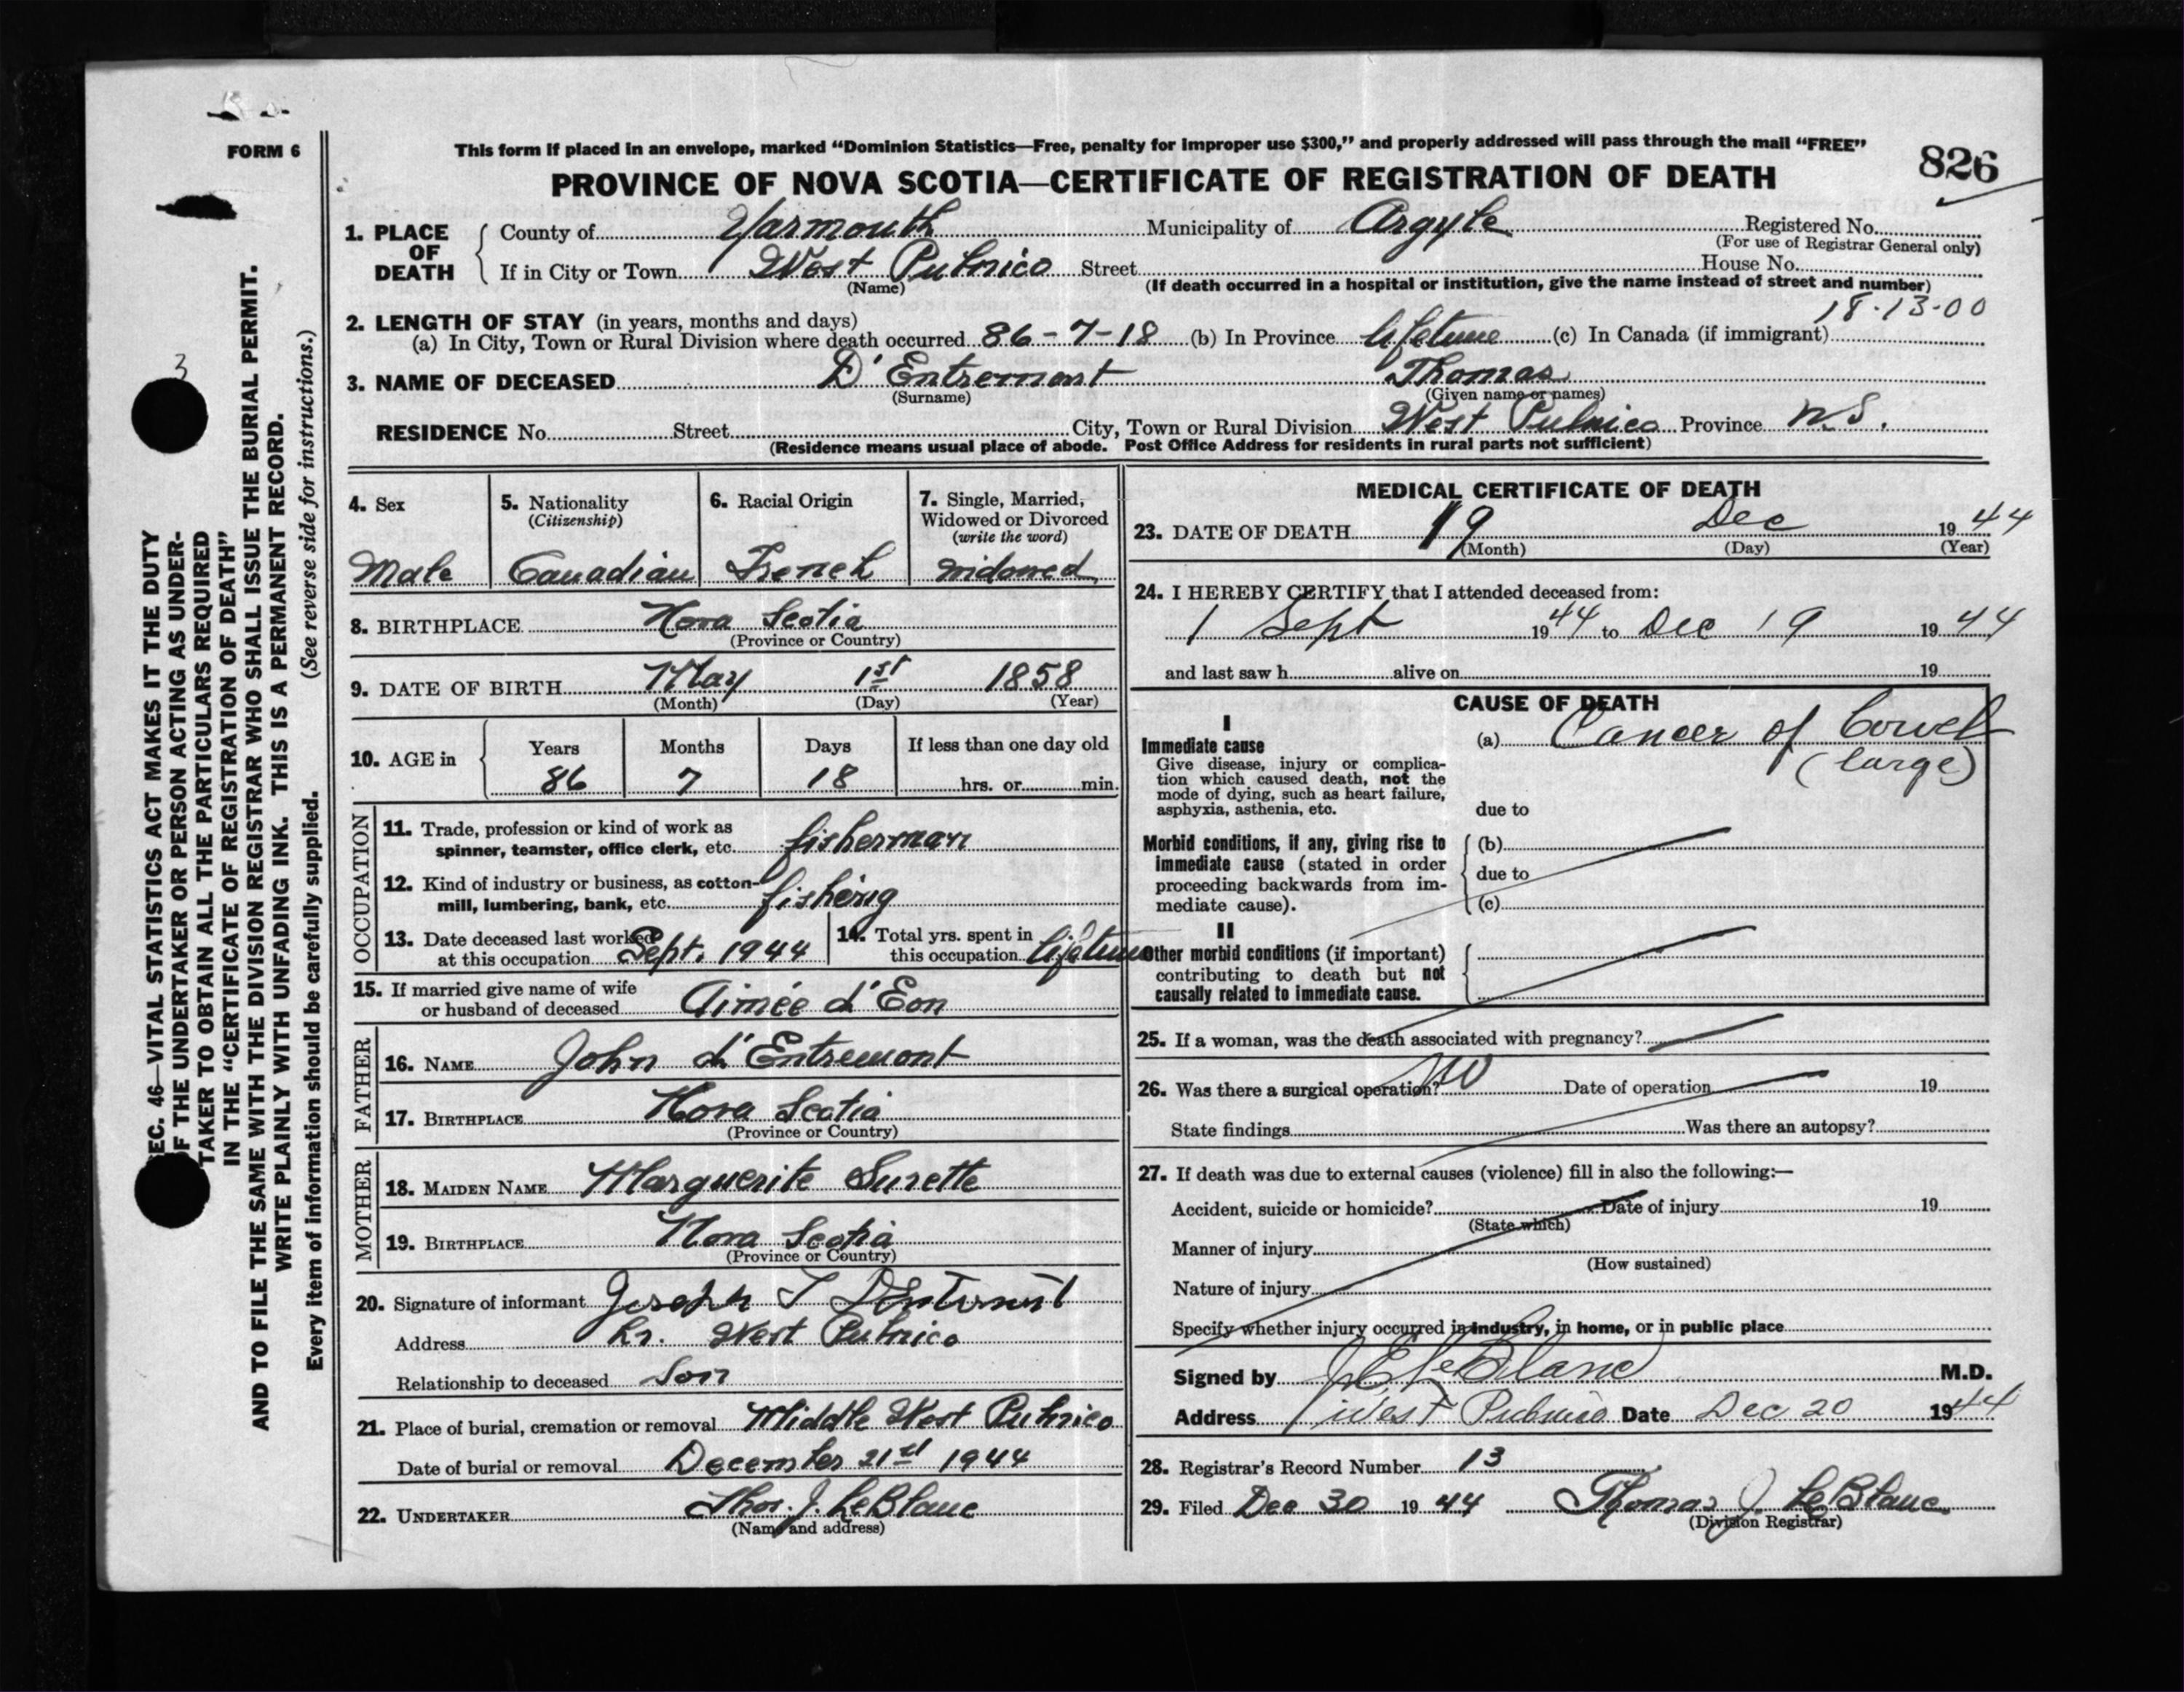 FORM 6
This form if placed in an envelope, marked “Dominion Statistics—Free, penalty for improper use $300,” and properly addressed will pass through the mail “FREE”
826
PROVINCE OF NOVA SCOTIA—CERTIFICATE OF REGISTRATION OF DEATH
1. PLACE OF DEATH
County of Yarmouth Municipality of Argyle Registered No.
(For use of Registrar General only)
If in City or Town West Pubnico Street House No.
(Name) (If death occurred in a hospital or institution, give the name instead of street and number)
18-13-00
2. LENGTH OF STAY (in years, months and days)
(a) In City, Town or Rural Division where death occurred 86-7-18 (b) In Province lifetime (c) In Canada (if immigrant)
3. NAME OF DECEASED D'Entremont Thomas
(Surname) (Given name or names)
RESIDENCE No. Street City, Town or Rural Division West Pubnico Province N.S.
(Residence means usual place of abode. Post Office Address for residents in rural parts not sufficient)
4. Sex Male
5. Nationality (Citizenship) Canadian
6. Racial Origin French
7. Single, Married, Widowed or Divorced (write the word) widowed
8. BIRTHPLACE Nova Scotia
(Province or Country)
9. DATE OF BIRTH May 1st 1858
(Month) (Day) (Year)
10. AGE in Years Months Days If less than one day old
86 7 18 hrs. or min.
OCCUPATION
11. Trade, profession or kind of work as
spinner, teamster, office clerk, etc. fisherman
12. Kind of industry or business, as cotton-
mill, lumbering, bank, etc. fishing
13. Date deceased last worked
at this occupation Sept. 1944
14. Total yrs. spent in
this occupation lifetime
15. If married give name of wife
or husband of deceased Aimée d'Eon
FATHER
16. NAME John d'Entremont
17. BIRTHPLACE Nova Scotia
(Province or Country)
MOTHER
18. MAIDEN NAME Marguerite Surette
19. BIRTHPLACE Nova Scotia
(Province or Country)
20. Signature of informant Joseph T DEntremont
Address Lr. West Pubnico
Relationship to deceased Son
21. Place of burial, cremation or removal Middle West Pubnico
Date of burial or removal December 21st 1944
22. UNDERTAKER Thos. J. LeBlanc
(Name and address)
MEDICAL CERTIFICATE OF DEATH
23. DATE OF DEATH 19 Dec 1944
(Month) (Day) (Year)
24. I HEREBY CERTIFY that I attended deceased from:
1 Sept 1944 to Dec 19 1944
and last saw h alive on 19
CAUSE OF DEATH
I
Immediate cause
Give disease, injury or complica-
tion which caused death, not the
mode of dying, such as heart failure,
asphyxia, asthenia, etc.
(a) Cancer of bowel
(large)
due to
Morbid conditions, if any, giving rise to
immediate cause (stated in order
proceeding backwards from im-
mediate cause).
(b)
due to
(c)
II
Other morbid conditions (if important)
contributing to death but not
causally related to immediate cause.
25. If a woman, was the death associated with pregnancy?
26. Was there a surgical operation? No Date of operation 19
State findings Was there an autopsy?
27. If death was due to external causes (violence) fill in also the following:—
Accident, suicide or homicide? Date of injury 19
(State which)
Manner of injury
(How sustained)
Nature of injury
Specify whether injury occurred in industry, in home, or in public place
Signed by J E LeBlanc M.D.
Address West Pubnico Date Dec 20 1944
28. Registrar's Record Number 13
29. Filed Dec 30 1944 Thomas J. LeBlanc
(Division Registrar)
3
SEC. 46—VITAL STATISTICS ACT MAKES IT THE DUTY
OF THE UNDERTAKER OR PERSON ACTING AS UNDER-
TAKER TO OBTAIN ALL THE PARTICULARS REQUIRED
IN THE “CERTIFICATE OF REGISTRATION OF DEATH”
AND TO FILE THE SAME WITH THE DIVISION REGISTRAR WHO SHALL ISSUE THE BURIAL PERMIT.
WRITE PLAINLY WITH UNFADING INK. THIS IS A PERMANENT RECORD.
Every item of information should be carefully supplied. (See reverse side for instructions.)